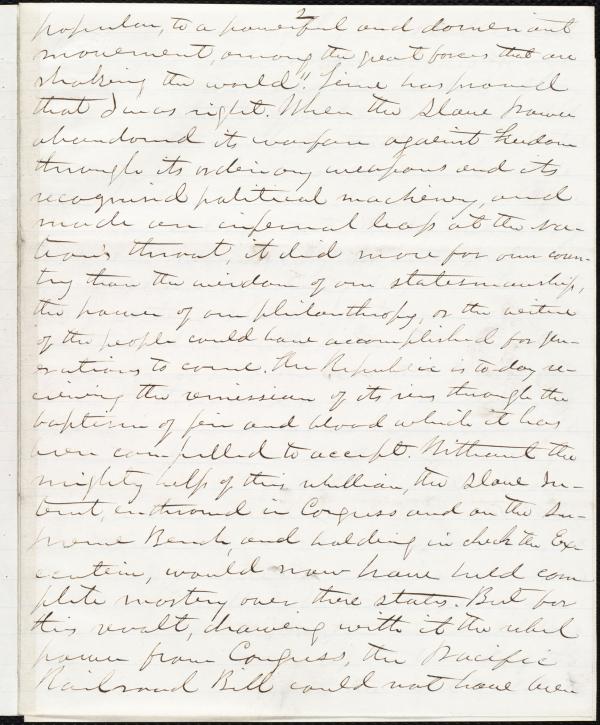 2
popular, to a powerful and dominant
movement, among the great forces that are
shaking the world." Time has proved
that I was right. When the Slave Power
abandoned its warfare against freedom
through its ordinary weapons and its
recognized political machinery, and
made an infernal leap at the na-
tion's throat, it did more for our coun-
try than the wisdom of our statesmanship,
the power of our philanthropy, or the virtue
of the people could have accomplished for gen-
erations to come. The Republic is to day re-
ceiving the remission of its sins through the
baptism of fire and blood which it has
been compelled to accept. Without the
mighty help of this rebellion, the Slave In-
terest, enthroned in Congress and on the Su-
preme Bench, and holding in check the Ex-
ecutive, would now have held com
plete mastery over these states. But for
this revolt, drawing with it the rebel
power from Congress, the Pacific
Railroad Bill could not have been